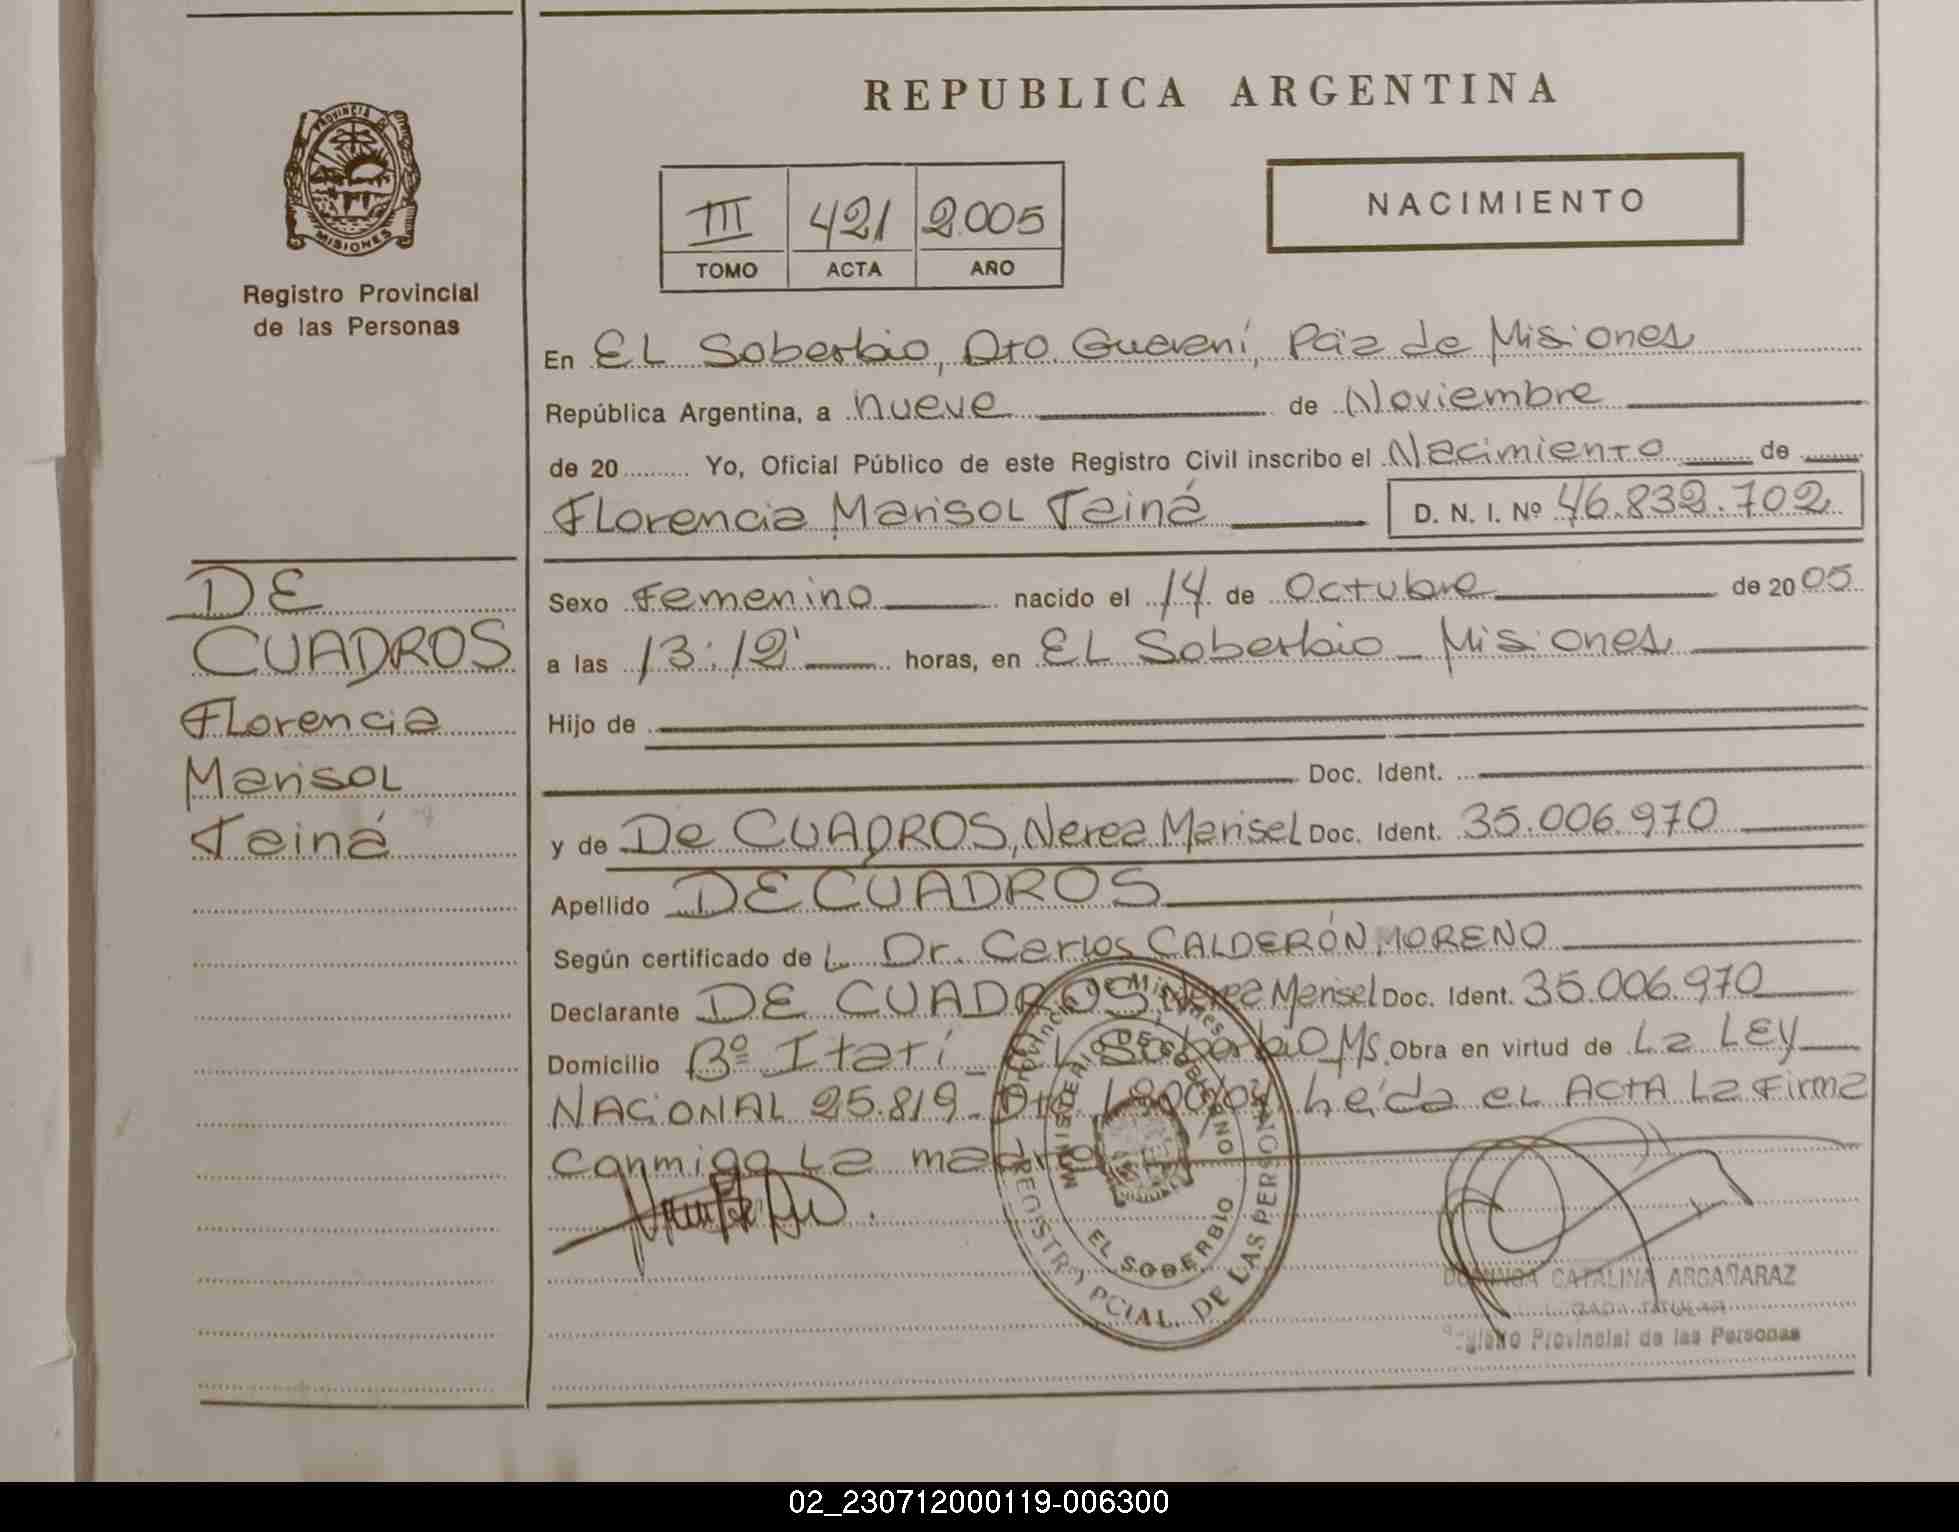 REPUBLICA ARGENTINA
PROVINCIA DE
MISIONES
Registro Provincial
de las Personas
III 421 2005
TOMO ACTA AÑO
NACIMIENTO
En EL Soberbio, Dto Guaraní, Pcia de Misiones
República Argentina, a nueve de Noviembre
de 20 Yo, Oficial Público de este Registro Civil inscribo el Nacimiento de
Florencia Marisol Tainá D. N. I. Nº 46.832.702
DE
CUADROS
Florencia
Marisol
Tainá
Sexo Femenino nacido el 14 de Octubre de 2005
a las 13:12' horas, en EL Soberbio - Misiones
Hijo de
Doc. Ident.
y de De CUADROS, Nerea Marisel Doc. Ident. 35.006.970
Apellido DE CUADROS
Según certificado de L. Dr. Carlos CALDERÓN MORENO
Declarante DE CUADROS, Nerea Marisel Doc. Ident. 35.006.970
Domicilio Bº Itatí - EL Soberbio Ms. Obra en virtud de La LEY
NACIONAL 25.819 - Dto Leída el ACTA La Firma
conmigo La madre
Provincia de Misiones
MINISTERIO DE GOBIERNO
EL SOBERBIO
REGISTRO PCIAL. DE LAS PERSONAS
DOMINGA CATALINA ARGAÑARAZ
TITULAR
Registro Provincial de las Personas
02_230712000119-006300